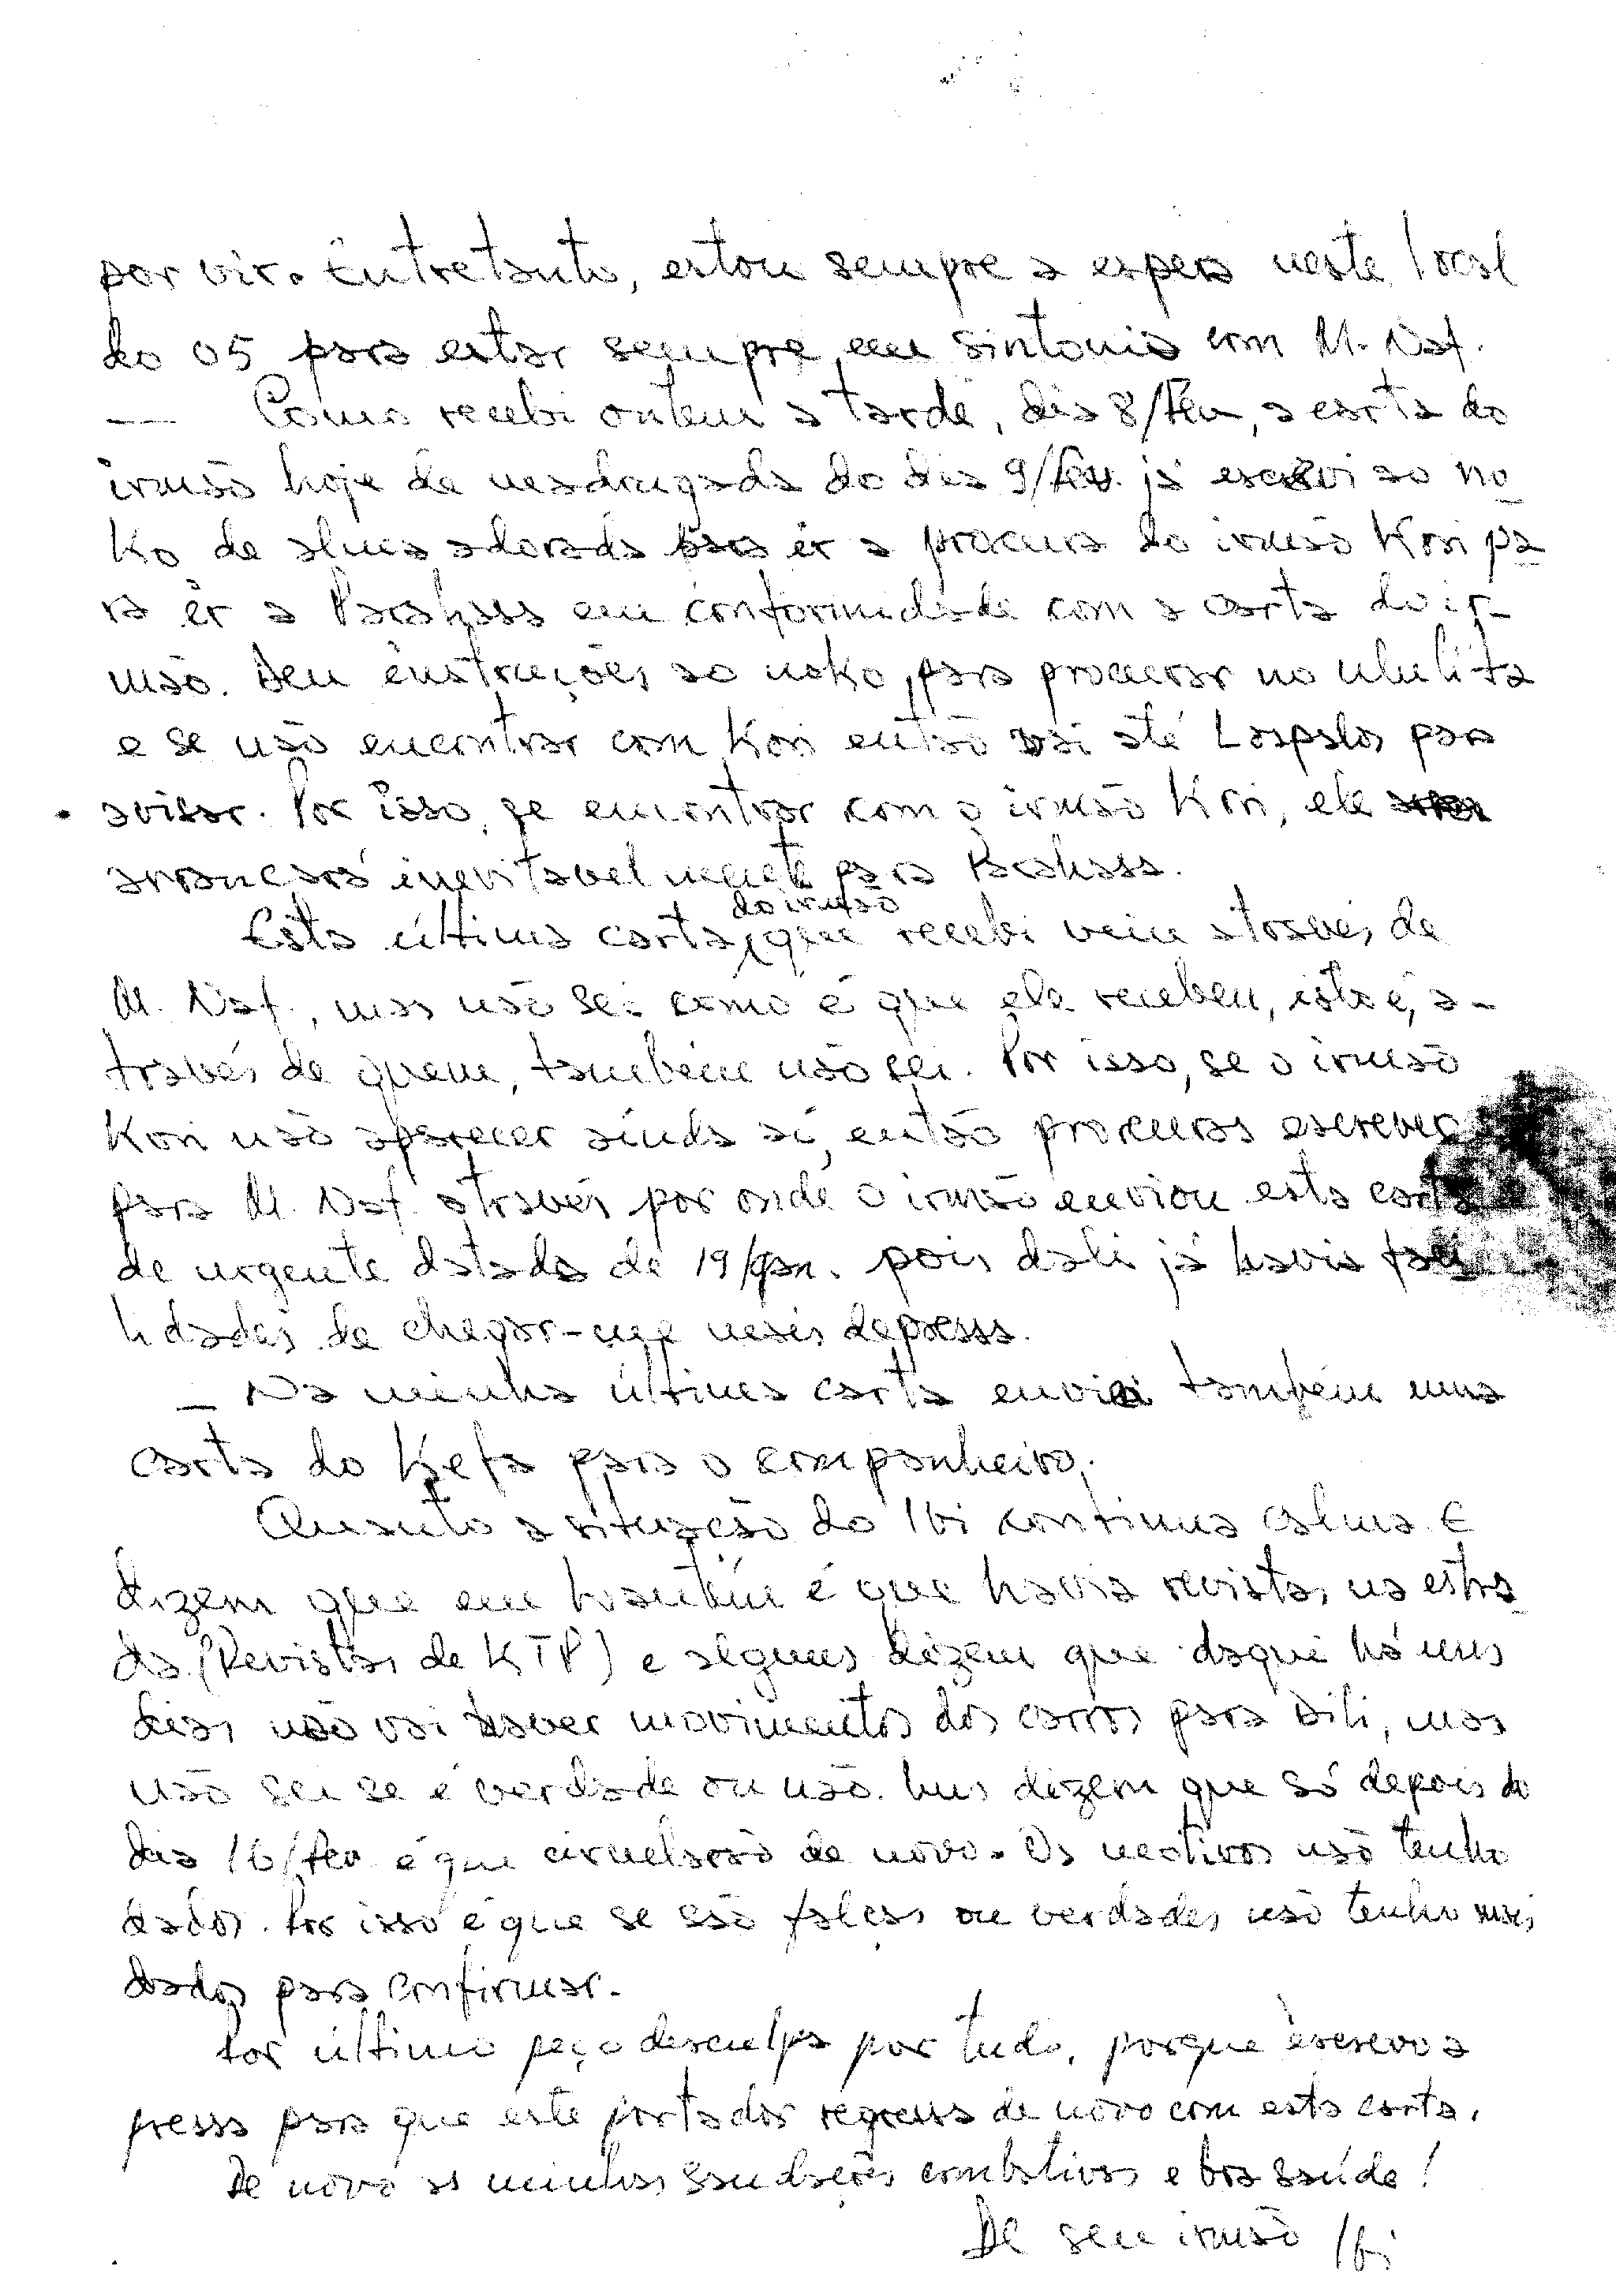 por vir. Entretanto, estou sempre a espera neste local
do 05 para estar sempre em sintonia com M. Naf.
— Como recebi ontem a tarde, dia 8/Fev, a carta do
irmão hoje de madrugada do dia 9/Fev. já escrevi ao no
ko de alma adorada para ir a procura do irmão Kori pa
ra ir a Parahasa em conformidade com a carta do ir-
mão. Deu instruções ao noko, para procurar no Ululita
e se não encontrar com Kori então vai até Lospalos para
avisar. Por isso, se encontrar com o irmão Kori, ele
arrancará inevitavelmente para Parahasa.
do irmão
Esta última carta, que recebi veio através de
M. Naf., mas não sei como é que ele recebeu, isto é, a-
través de quem, também não sei. Por isso, se o irmão
Kori não aparecer ainda aí, então procuras escrever
para M. Naf. através por onde o irmão enviou esta carta
de urgente datada de 19/Jan. pois dali já havia faci
lidades de chegar-me mais depressa.
— Na minha última carta enviei também uma
carta do Kefa para o companheiro.
Quanto a situação do Ibi continua calma. E
dizem que em Lautém é que havia revistas na estra
da (Revistas de KTP) e alguns dizem que daqui há uns
dias não vai haver movimentos dos carros para Dili, mas
não sei se é verdade ou não. Uns dizem que só depois do
dia 16/Fev é que circularão de novo. Os motivos não tenho
dados. Por isso é que se são falsas ou verdades não tenho mais
dados para confirmar.
Por último peço desculpa por tudo, porque escrevo a
pressa para que este portador regressa de novo com esta carta.
De novo as minhas saudações combativas e boa saúde!
De seu irmão Ibi